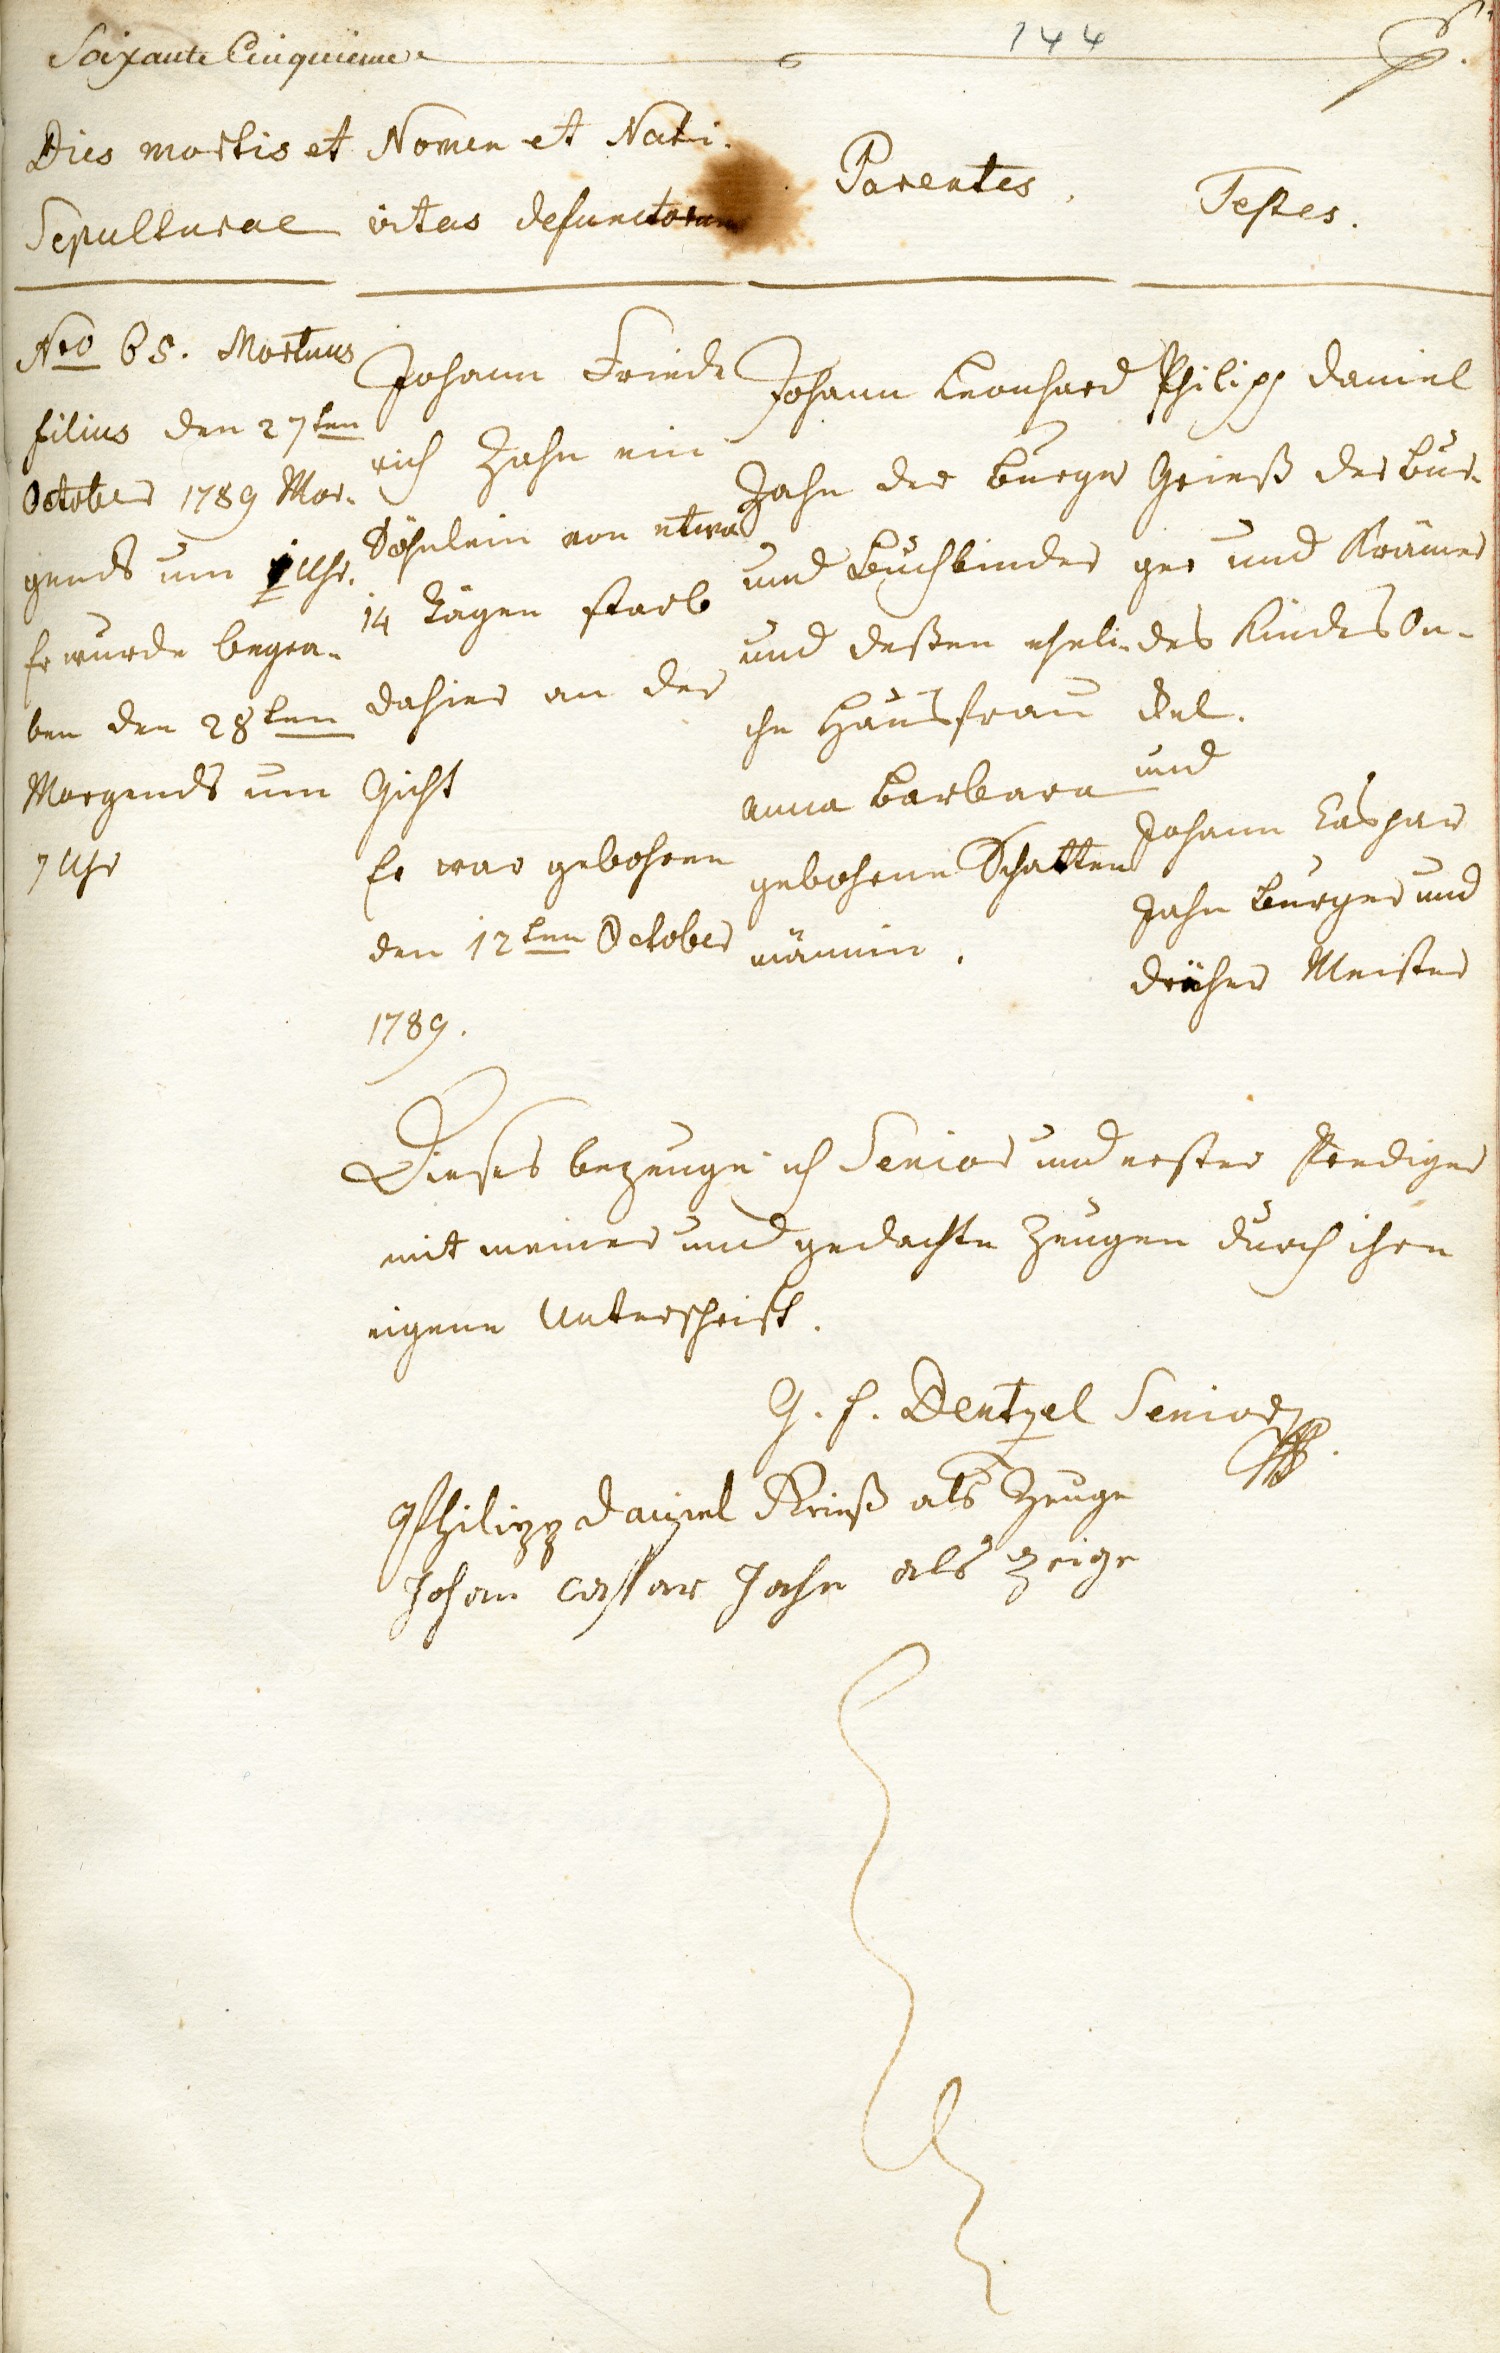 Soixante Cinquieme
144
Dies mortis et
Sepulturae
Nomen et Nati-
vitas defunctorum
Parentes.
Testes.
Nro 65. Mortuus
filius den 27ten
October 1789 Mor-
gends um 1 Uhr.
Er wurde begra-
ben den 28ten
Morgends um
7 Uhr
Johann Friede
rich Jahn ein
Söhnlein von etwa
14 Tägen starb
dahier an der
Gicht
Er war gebohren
den 12ten October
1789.
Johann Leonhard
Jahn der Burger
und Buchbinder
und deßen eheli-
che Hausfrau
anna Barbara
gebohrne Schatten
männin.
Philipp Daniel
Grieß der Bur-
ger und Krämer
des Kindes On-
kel.
und
Johann Caspar
Jahn Burger und
dräher Meister
Dieses bezeuge ich Senior und erster Prediger
mit meiner und gedachte Zeugen durch ihre
eigene Unterschrift.
G. F. Dentzel Senior
Philipp Daniel Krieß als Zeuge
Johan Caspar Jahn als Zeige